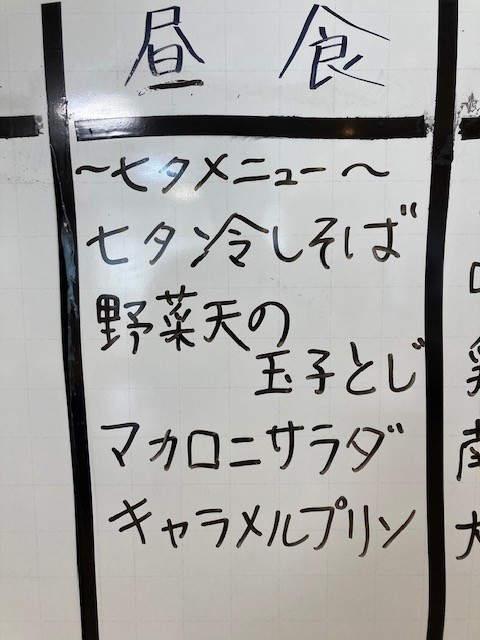 昼食
〜七夕メニュー〜
七夕冷しそば
野菜天の
玉子とじ
マカロニサラダ
キャラメルプリン